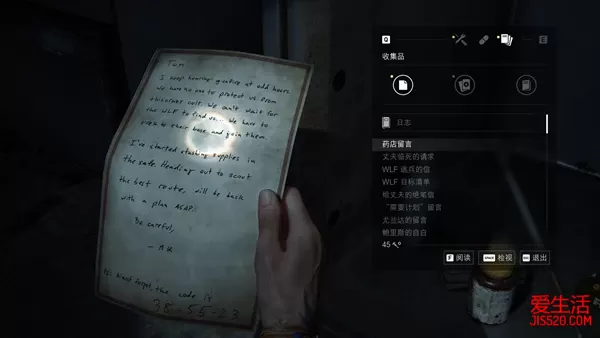 Tom
I keep hearing gunfire at odd hours.
We have no one to protect us from
this
We can't wait for
the WLF to find us... We have to
their base and join them
I've started stashing supplies in
the safe. Heading out to scout
the best route, will be back
with a plan ASAP.
Be careful,
P.S. Almost forgot, the code is
38-55-23
Q
E
收集品
日志
药店留言
丈夫临死的请求
WLF 逃兵的信
WLF 目标清单
给丈夫的绝笔信
留言
尤兰达的留言
鲍里斯的自白
45
F 阅读
检视
退出
爱生活
JIS520.COM